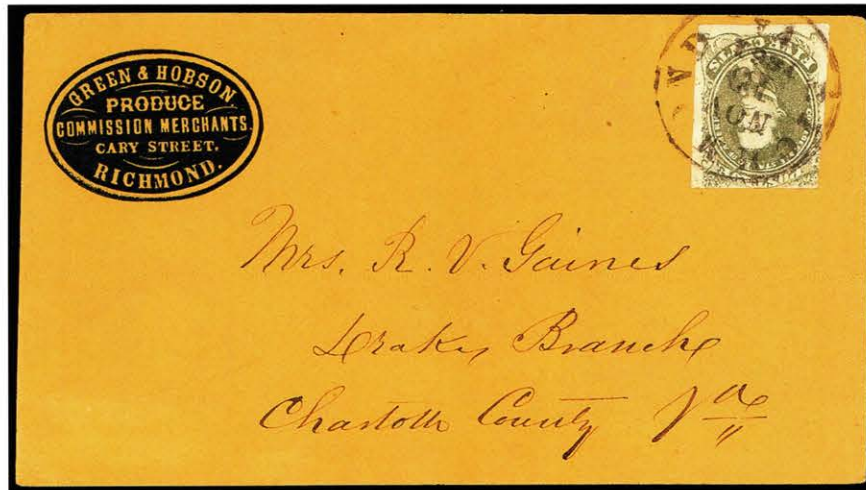 GREEN & HOBSON
PRODUCE
COMMISSION MERCHANTS.
CARY STREET.
RICHMOND.
Mrs. R. V. Gaines
Drakes Branch
Charlotte County Va